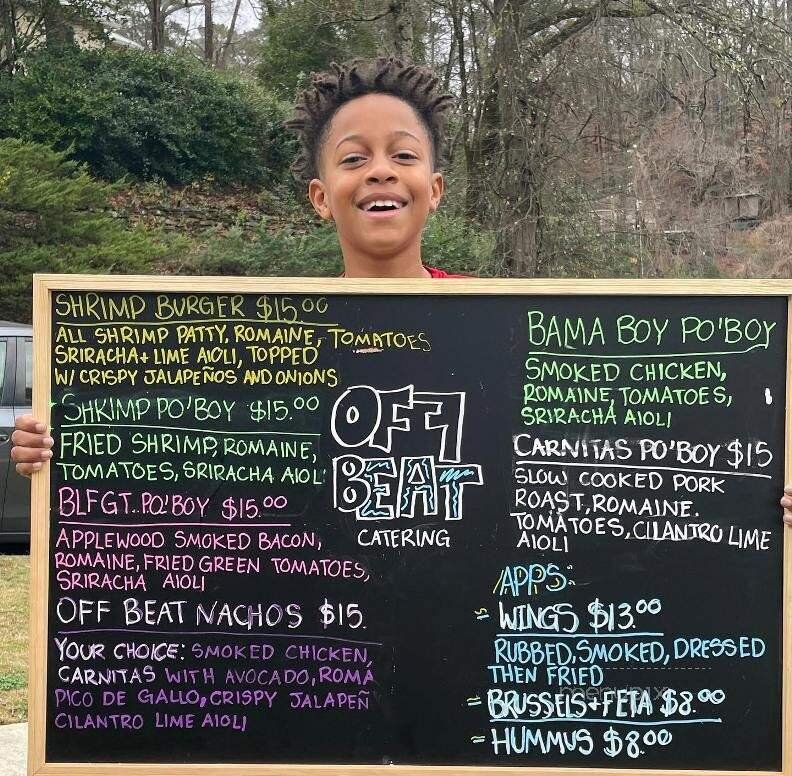 SHRIMP BURGER $15.00
ALL SHRIMP PATTY, ROMAINE, TOMATOES
SRIRACHA + LIME AIOLI, TOPPED
W/ CRISPY JALAPEÑOS AND ONIONS
SHRIMP PO'BOY $15.00
FRIED SHRIMP, ROMAINE,
TOMATOES, SRIRACHA AIOL
BLFGT PO'BOY $15.00
APPLEWOOD SMOKED BACON,
ROMAINE, FRIED GREEN TOMATOES,
SRIRACHA AIOLI
OFF BEAT NACHOS $15.
YOUR CHOICE: SMOKED CHICKEN,
CARNITAS WITH AVOCADO, ROMA
PICO DE GALLO, CRISPY JALAPEÑ
CILANTRO LIME AIOLI
OFF
BEAT
CATERING
BAMA BOY PO'BOY
SMOKED CHICKEN,
ROMAINE, TOMATOES,
SRIRACHA AIOLI
CARNITAS PO'BOY $15
SLOW COOKED PORK
ROAST, ROMAINE.
TOMATOES, CILANTRO LIME
AIOLI
APPS:
= WINGS $13.00
RUBBED, SMOKED, DRESSED
THEN FRIED
= BRUSSELS + FETA $8.00
= HUMMUS $8.00